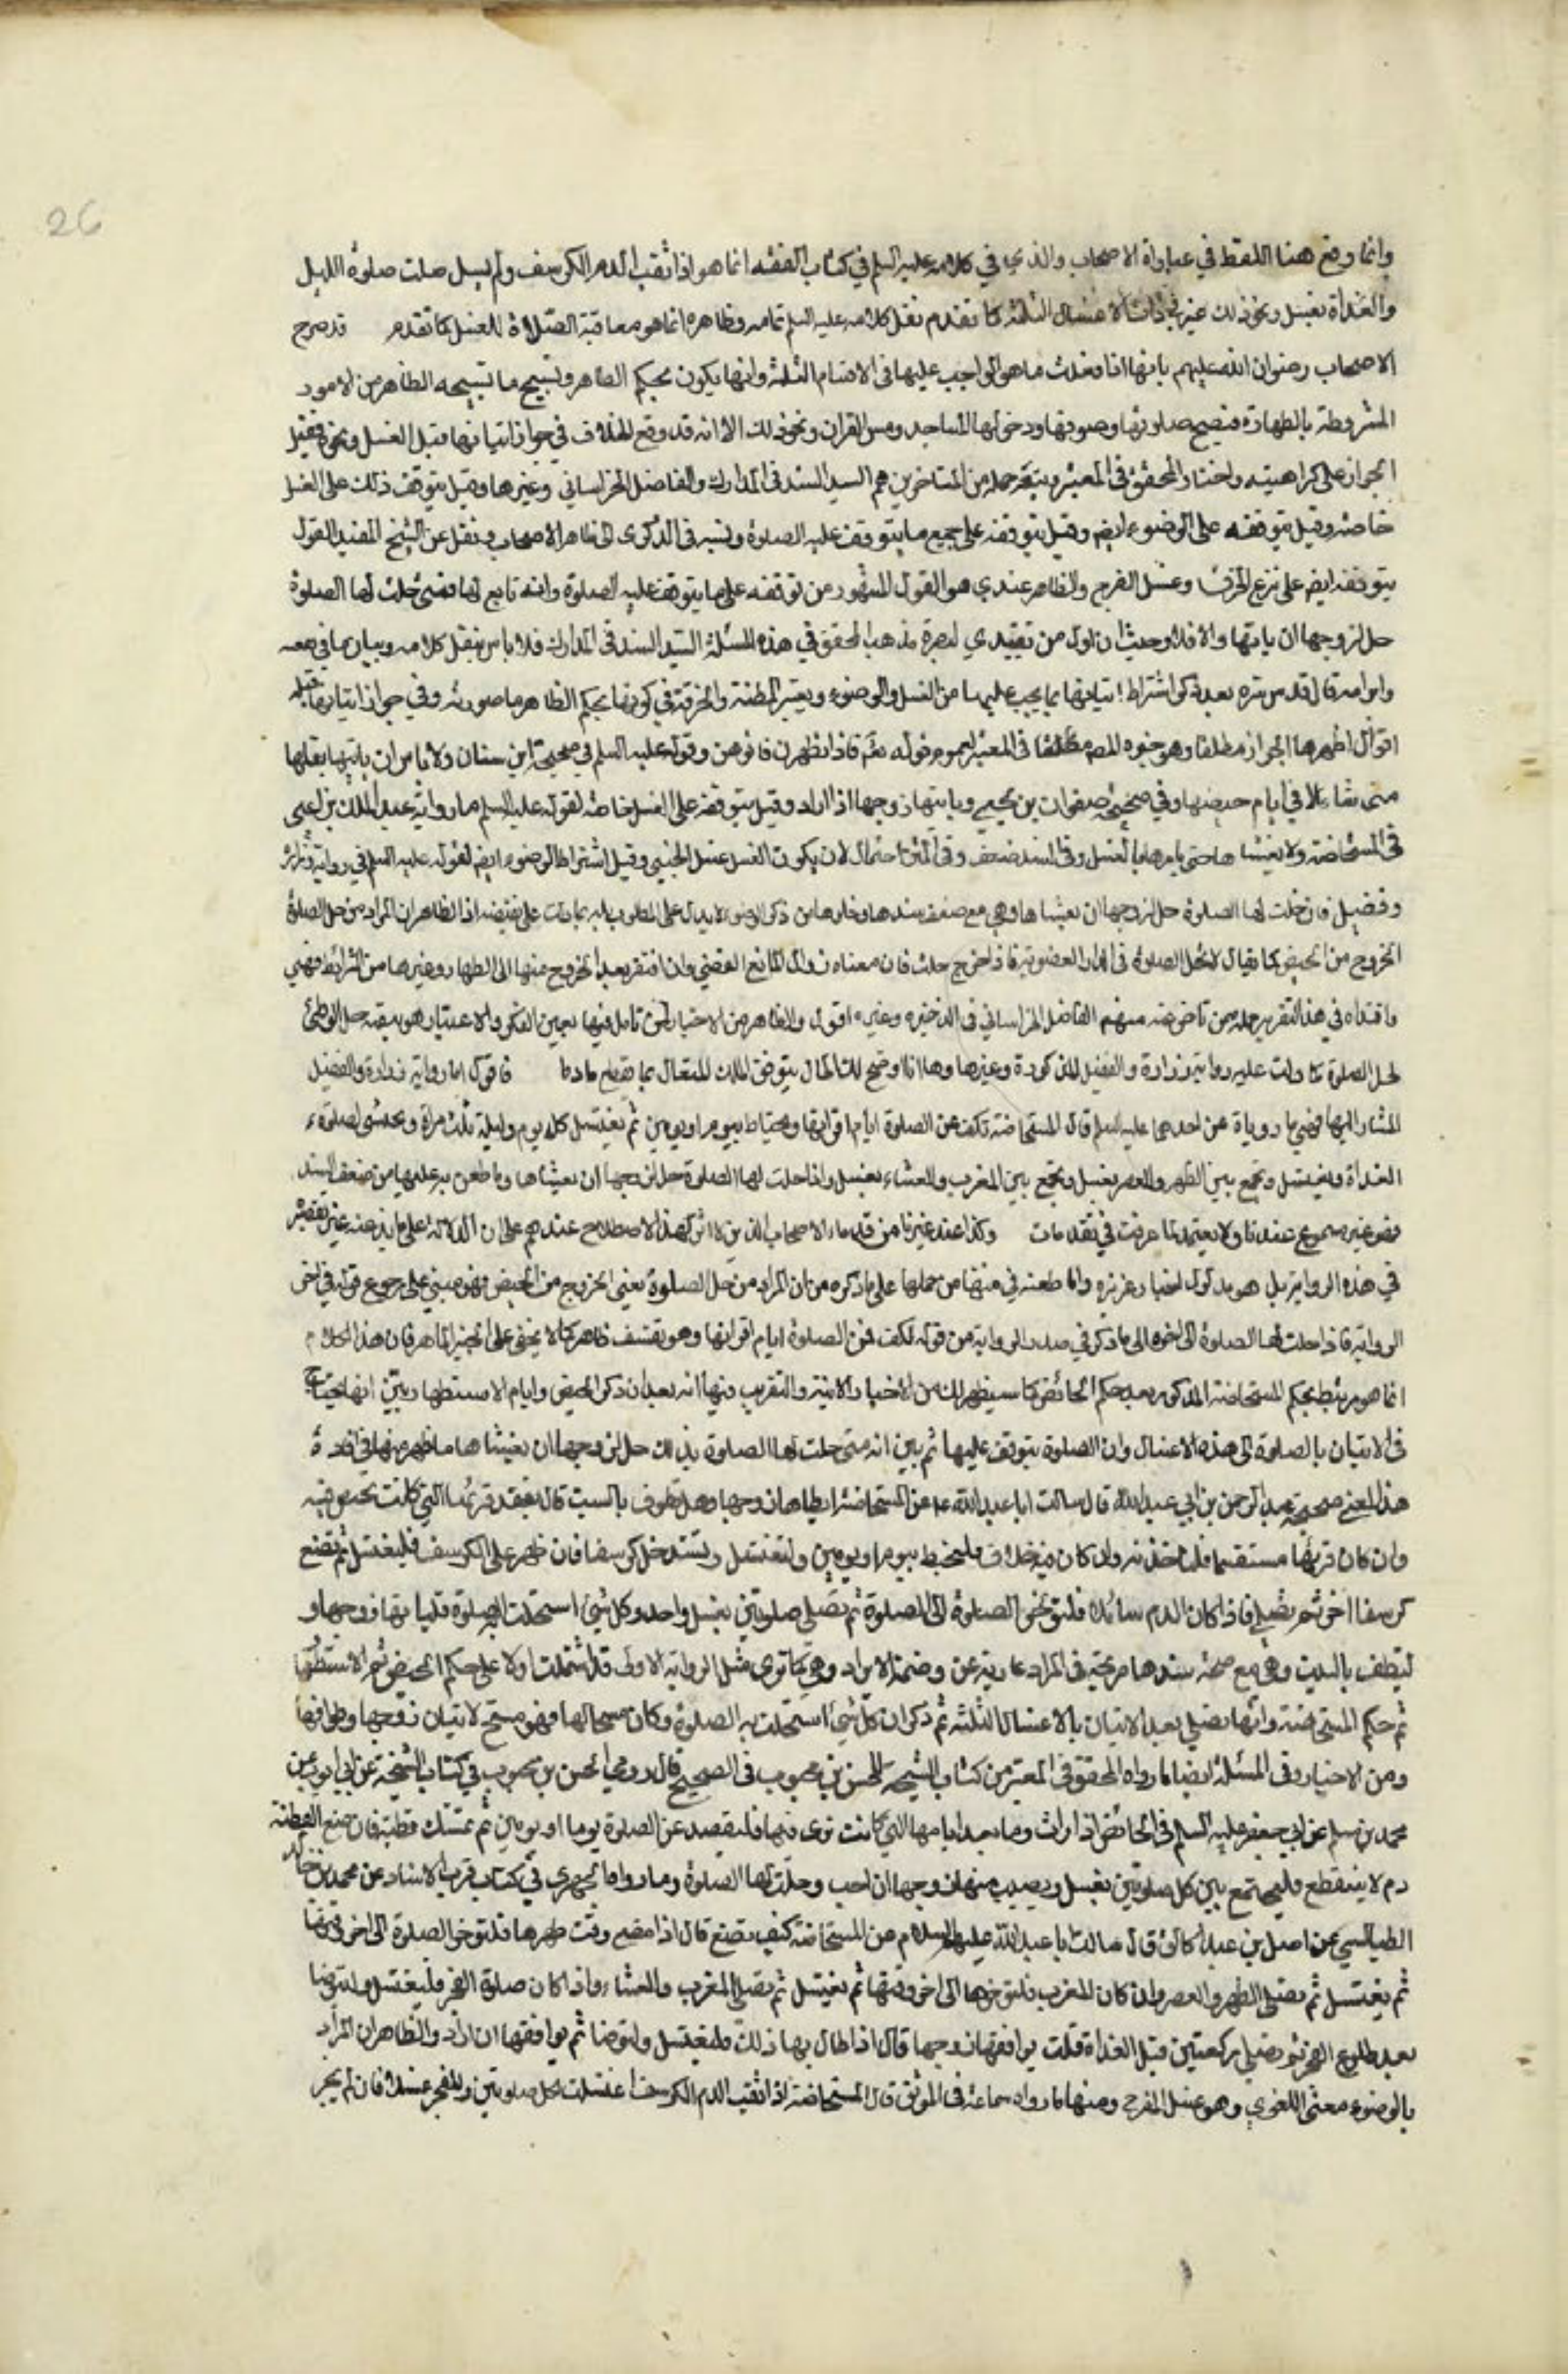 وانما وقع هذا اللفظ في عباراة الاصحاب والذي في كلامه عليه السلم في كتاب الفقه انما هو اذا ثقب الدم الكرسف ولم يسل صلت صلوة الليل
والغداة بغسل ونحو ذلك عبر في ذات الاغسال الثلثة كما تقدم نقل كلامه عليه السلم تمامه وظاهره انما هو معاقبة الصلاة للغسل كما تقدم قد صرح
الاصحاب رضوان الله عليهم بانها اذا فعلت ما هو الواجب عليها في الاقسام الثلثة وانها يكون بحكم الطاهر وتستبيح ما تستبيحه الطاهر من الامور
المشروطة بالطهارة فتصح صلوتها وصومها ودخولها المساجد ومس القران ونحو ذلك الا انه قد وقع الخلاف في جواز اتيانها قبل الغسل ونحوه فقيل
الجواز على كراهية واختاره المحقق في المعتبر وتبعه جملة من المتاخرين هم السيد السند في المدارك والفاضل الخراساني وغيرها وقيل بتوقف ذلك على الغسل
خاصة وقيل بتوقفه على الوضوء ايضا وقيل بتوقفه على جميع ما يتوقف عليه الصلوة ونسبه في الذكرى الى ظاهر الاصحاب ونقل عن الشيخ المفيد القول
بتوقفه ايضا على نزع الخرق وغسل الفرج والظاهر عندي هو القول المشهور من توقفه على ما يتوقف عليه الصلوة وانه تابع لها فمتى حلت لها الصلوة
حل لزوجها ان ياتيها والا فلا وحيث ان اول من تصدى لنصرة مذهب المحقق في هذه المسئلة السيد السند في المدارك فلا باس بنقل كلامه وبيان ما في نقضه
وابرامه قال قدس سره بعد ذكر اشتراط اتيانها بما يجب عليها من الغسل والوضوء وتغيير القطنة والخرقة في كونها بحكم الطاهر ما صورته وفي جواز اتيانها قبله
اقوال اظهرها الجواز مطلقا وهو خيره المصنف مطلقا في المعتبر لعموم قوله تعالى فاذا تطهرن فاتوهن وقوله عليه السلم في صحيحة ابن سنان ولا باس ان ياتيها بعلها
متى شاء الا في ايام حيضها وفي صحيحة صفوان بن يحيى وياتيها زوجها اذا اراد وقيل بتوقفه على الغسل خاصة لقوله عليه السلم ما رواية عبد الملك بن اعين
في المستحاضة ولا يغشاها حتى يامرها بالغسل وفي السند ضعف وفي المتن احتمال لان يكون الغسل غسل الحيض وقيل اشتراط الوضوء ايضا لقوله عليه السلم في رواية زرارة
وفضيل فاذا حلت لها الصلوة حل لزوجها ان يغشاها وهي مع ضعف سندها وخلوها من ذكر الوضوء لا يدل على المطلوب بل ربما دلت على نقيضه اذ الظاهر ان المراد من حل الصلوة
الخروج من الحيض كما يقال لا تحل الصلوة في الدار المغصوبة فاذا خرج حلت فان معناه زوال المانع الغصبي وان افتقر بعد الخروج منها الى الطهارة وغيرها من الشرايط انتهى
واقتداه في هذا التقرير جملة من تاخر عنه منهم الفاضل الخراساني في الذخيره وغيره اقول والظاهر من الاخبار لمن تامل فيها بعين الفكر والاعتبار هو تبعية حل الوطئ
لحل الصلوة كما دلت عليه رواية زرارة والفضيل المذكورة وغيرها وها انا اوضح لك الحال بتوفيق الملك المتعال بما يقطع مادة فاقول اما رواية زرارة والفضيل
المشار اليها فهي ما روياه عن احدهما عليه السلم قال المستحاضة تكف عن الصلوة ايام اقرائها وتحتاط بيوم او يومين ثم تغتسل كل يوم وليلة ثلث مرات وتحتشي لصلوة
الغداة وتغتسل وتجمع بين الظهر والعصر بغسل وتجمع بين المغرب والعشاء بغسل واذا حلت لها الصلوة حل لزوجها ان يغشاها وما طعن به عليها من ضعف السند
فهو غير مسموع عندنا ولا يعتمد لما عرفت في مقدمات وكذا عند غيرنا من قدماء الاصحاب الذين لا اثر لهذا الاصطلاح عندهم على ان الدلالة على ما ندعيه غير مقصور
في هذه الرواية بل هو مدلول اخبار غزيره واما طعنه في متنها من حملها على ما ذكره من ان المراد من حل الصلوة يعني الخروج من الحيض فهو مبني على رجوع قوله في اخر
الرواية فاذا حلت لها الصلوة الى اخره الى ما ذكر في صدر الرواية من قوله تكف عن الصلوة ايام اقرائها وهو تعسف ظاهر كما لا يخفى على الخبير الماهر فان هذا الكلام
انما هو مرتبط بحكم المستحاضة المذكور بعد حكم الحائض كما سيظهر لك من الاخبار الاتية والتقريب فيها انه بعد ان ذكر الحيض وايام الاستظهار وبين انها تحتاج
في الاتيان بالصلوة الى هذه الاغسال وان الصلوة يتوقف عليها ثم بين انه متى حلت لها الصلوة بذلك حل لزوجها ان يغشاها ما ظهر منها في افادة
هذا المعنى صحيحة عبد الرحمن بن ابي عبد الله قال سالت ابا عبد الله عن المستحاضة ايطاها زوجها وهل تطوف بالبيت قال تقعد قرئها التي كانت تحيض فيه
وان كان قرئها مستقيما فلتاخذ به وان كان فيه خلاف فلتحتط بيوم او يومين ولتغتسل وتستدخل كرسفا فان ظهر على الكرسف فلتغتسل ثم تضع
كرسفا اخر ثم تصلي فاذا كان الدم سائلا فلتؤخر الصلوة الى الصلوة ثم تصلي صلوتين بغسل واحد وكل شئ استحلت به الصلوة فلياتها زوجها و
لتطف بالبيت وهي مع صحة سندها صريحة في المراد عارية عن وصمة الايراد وهي كما ترى مثل الرواية الاولى قد اشتملت اولا على حكم الحيض ثم الاستظهار
ثم حكم المستحاضة وانها تصلي بعد الاتيان بالاغسال الثلثة ثم ذكر ان كل شئ استحلت به الصلوة وكان مبيحا لها فهو مبيح لاتيان زوجها وطوافها
ومن الاخبار في المسئلة ايضا ما رواه المحقق في المعتبر من كتاب المشيخة للحسن بن محبوب في الصحيح قال روى الحسن بن محبوب في كتاب المشيخة عن ابي ايوب عن
محمد بن مسلم عن ابي جعفر عليه السلم في الحائض اذا رات دما بعد ايامها التي كانت ترى فيها فلتقعد عن الصلوة يوما او يومين ثم تمسك قطنة فان صبغ القطنة
دم لا ينقطع فلتجمع بين كل صلوتين بغسل ويصيب منها زوجها ان احب وحلت لها الصلوة وما رواه الحميري في كتاب قرب الاسناد عن محمد بن خالد
الطيالسي عن اسمعيل بن عبد الخالق قال سالت ابا عبد الله عليه السلام عن المستحاضة كيف تصنع قال اذا مضى وقت طهرها فلتؤخر الصلوة الى اخر وقتها
ثم تغتسل ثم تصلي الظهر والعصر وان كان المغرب فلتؤخرها الى اخر وقتها ثم تغتسل ثم تصلي المغرب والعشاء واذا كان صلوة الفجر فلتغتسل ولتتوضا
بعد طلوع الفجر ثم تصلي ركعتين قبل الغداة قلت يواقعها زوجها قال اذا طال بها ذلك فلتغتسل ولتوضا ثم يواقعها ان اراد والظاهر ان المراد
بالوضوء معناه اللغوي وهو غسل الفرج ومنها ما رواه سماعة في الموثق قال المستحاضة اذا ثقب الدم الكرسف اغتسلت لكل صلوتين وللفجر غسلا فان لم يجز
26